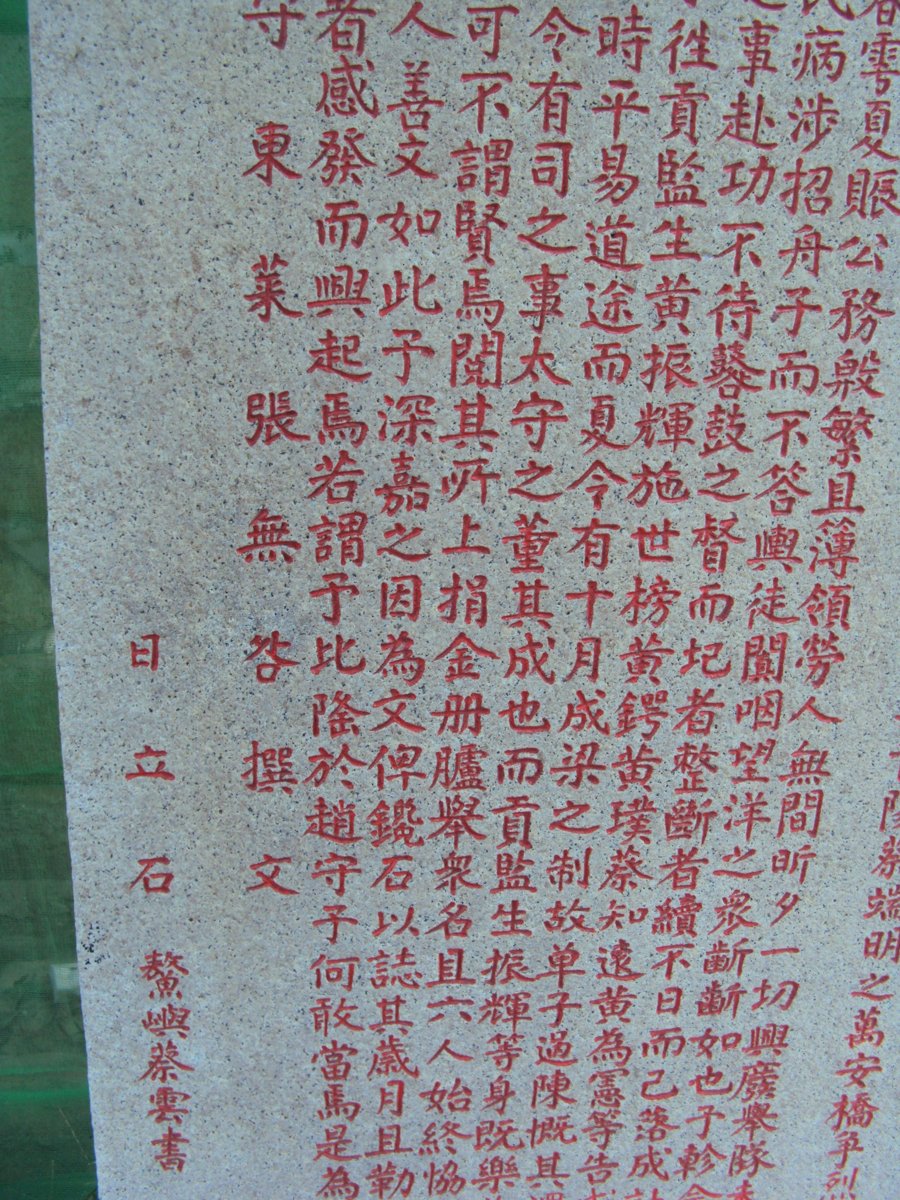 陽蔡端明之萬安橋爭烈
春雩夏賑公務殷繁且薄領勞人無間昕夕一切興廢舉隊
民病涉招舟子而不答輿徒闐咽望洋之眾斷斷如也予軫
事赴功不待鼛鼓之督而圮者整斷者續不日而已落成
徃貢監生黃振輝施世榜黃鍔黃璞蔡知遠黃為憲等告
時平易道途而夏令有十月成梁之制故单子過陳慨其
今有司之事太守之董其成也而貢監生振輝等身既樂
可不謂賢焉閱其所上捐金册臚舉眾名且六人始終恊
人善文如此予深嘉之因為文俾鑱石以誌其歲月且勒
者感發而興起焉若謂予比隆於趙守予何敢當焉是為
守東萊張無咎撰文
日立石
鰲嶼蔡雲書